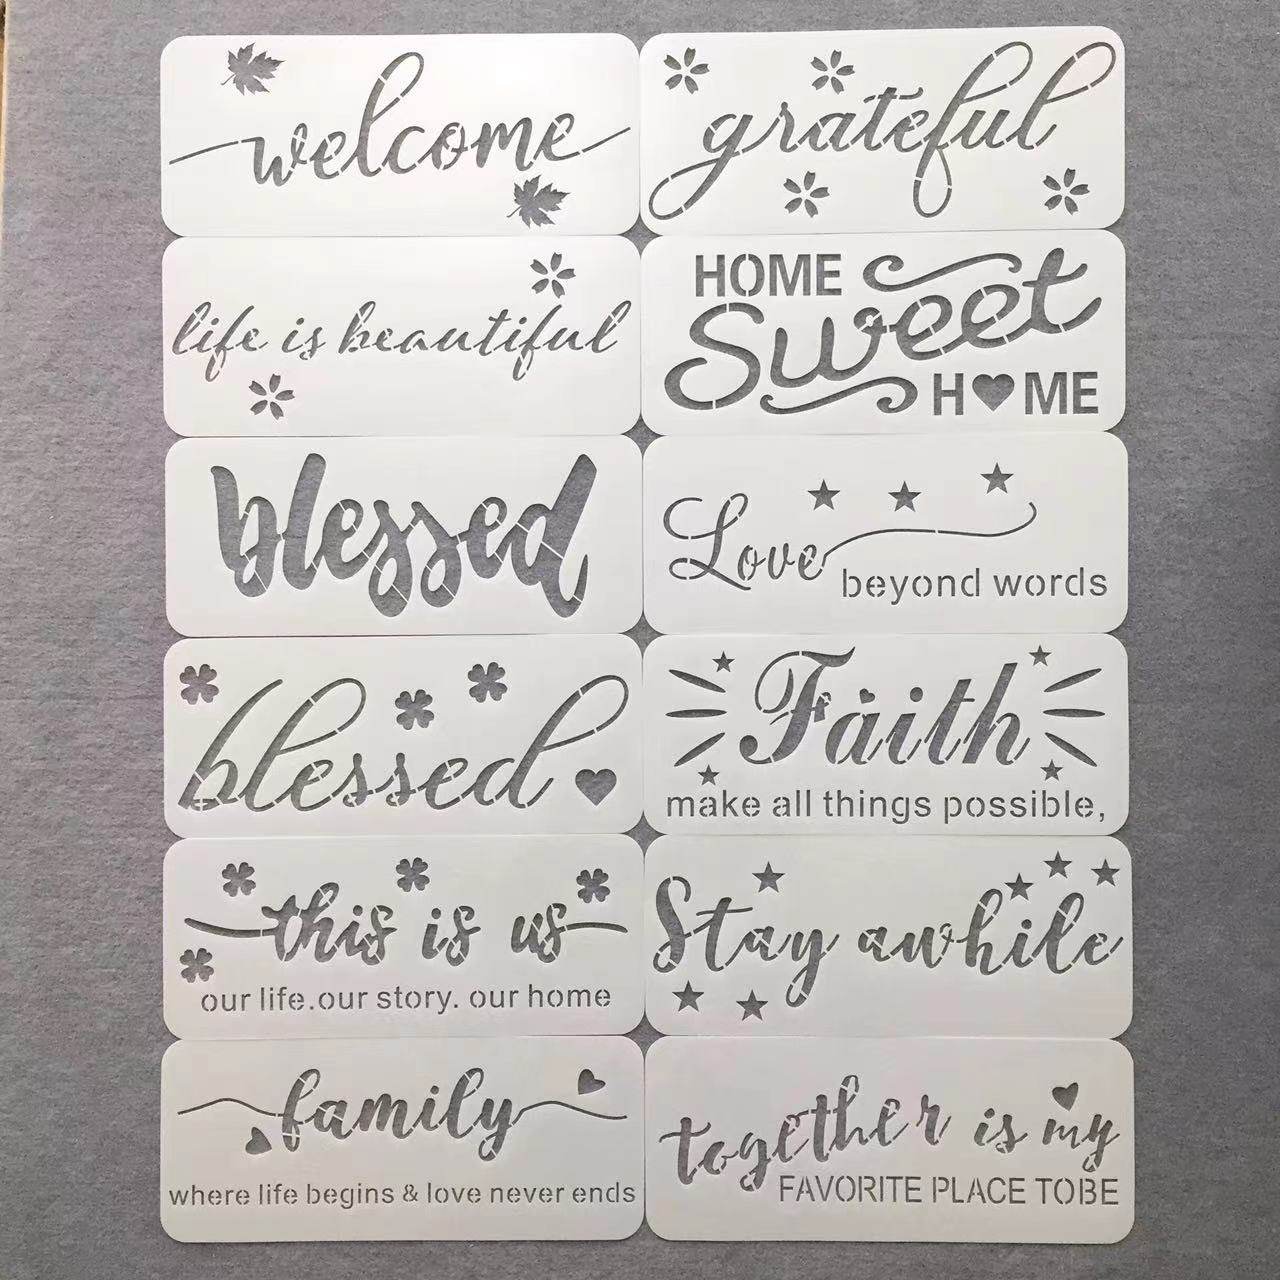 welcome
grateful
life is beautiful
HOME
Sweet
H♥ME
blessed
Love
beyond words
blessed
Faith
make all things possible,
this is us
our life.our story. our home
Stay awhile
family
where life begins & love never ends
together is my
FAVORITE PLACE TOBE